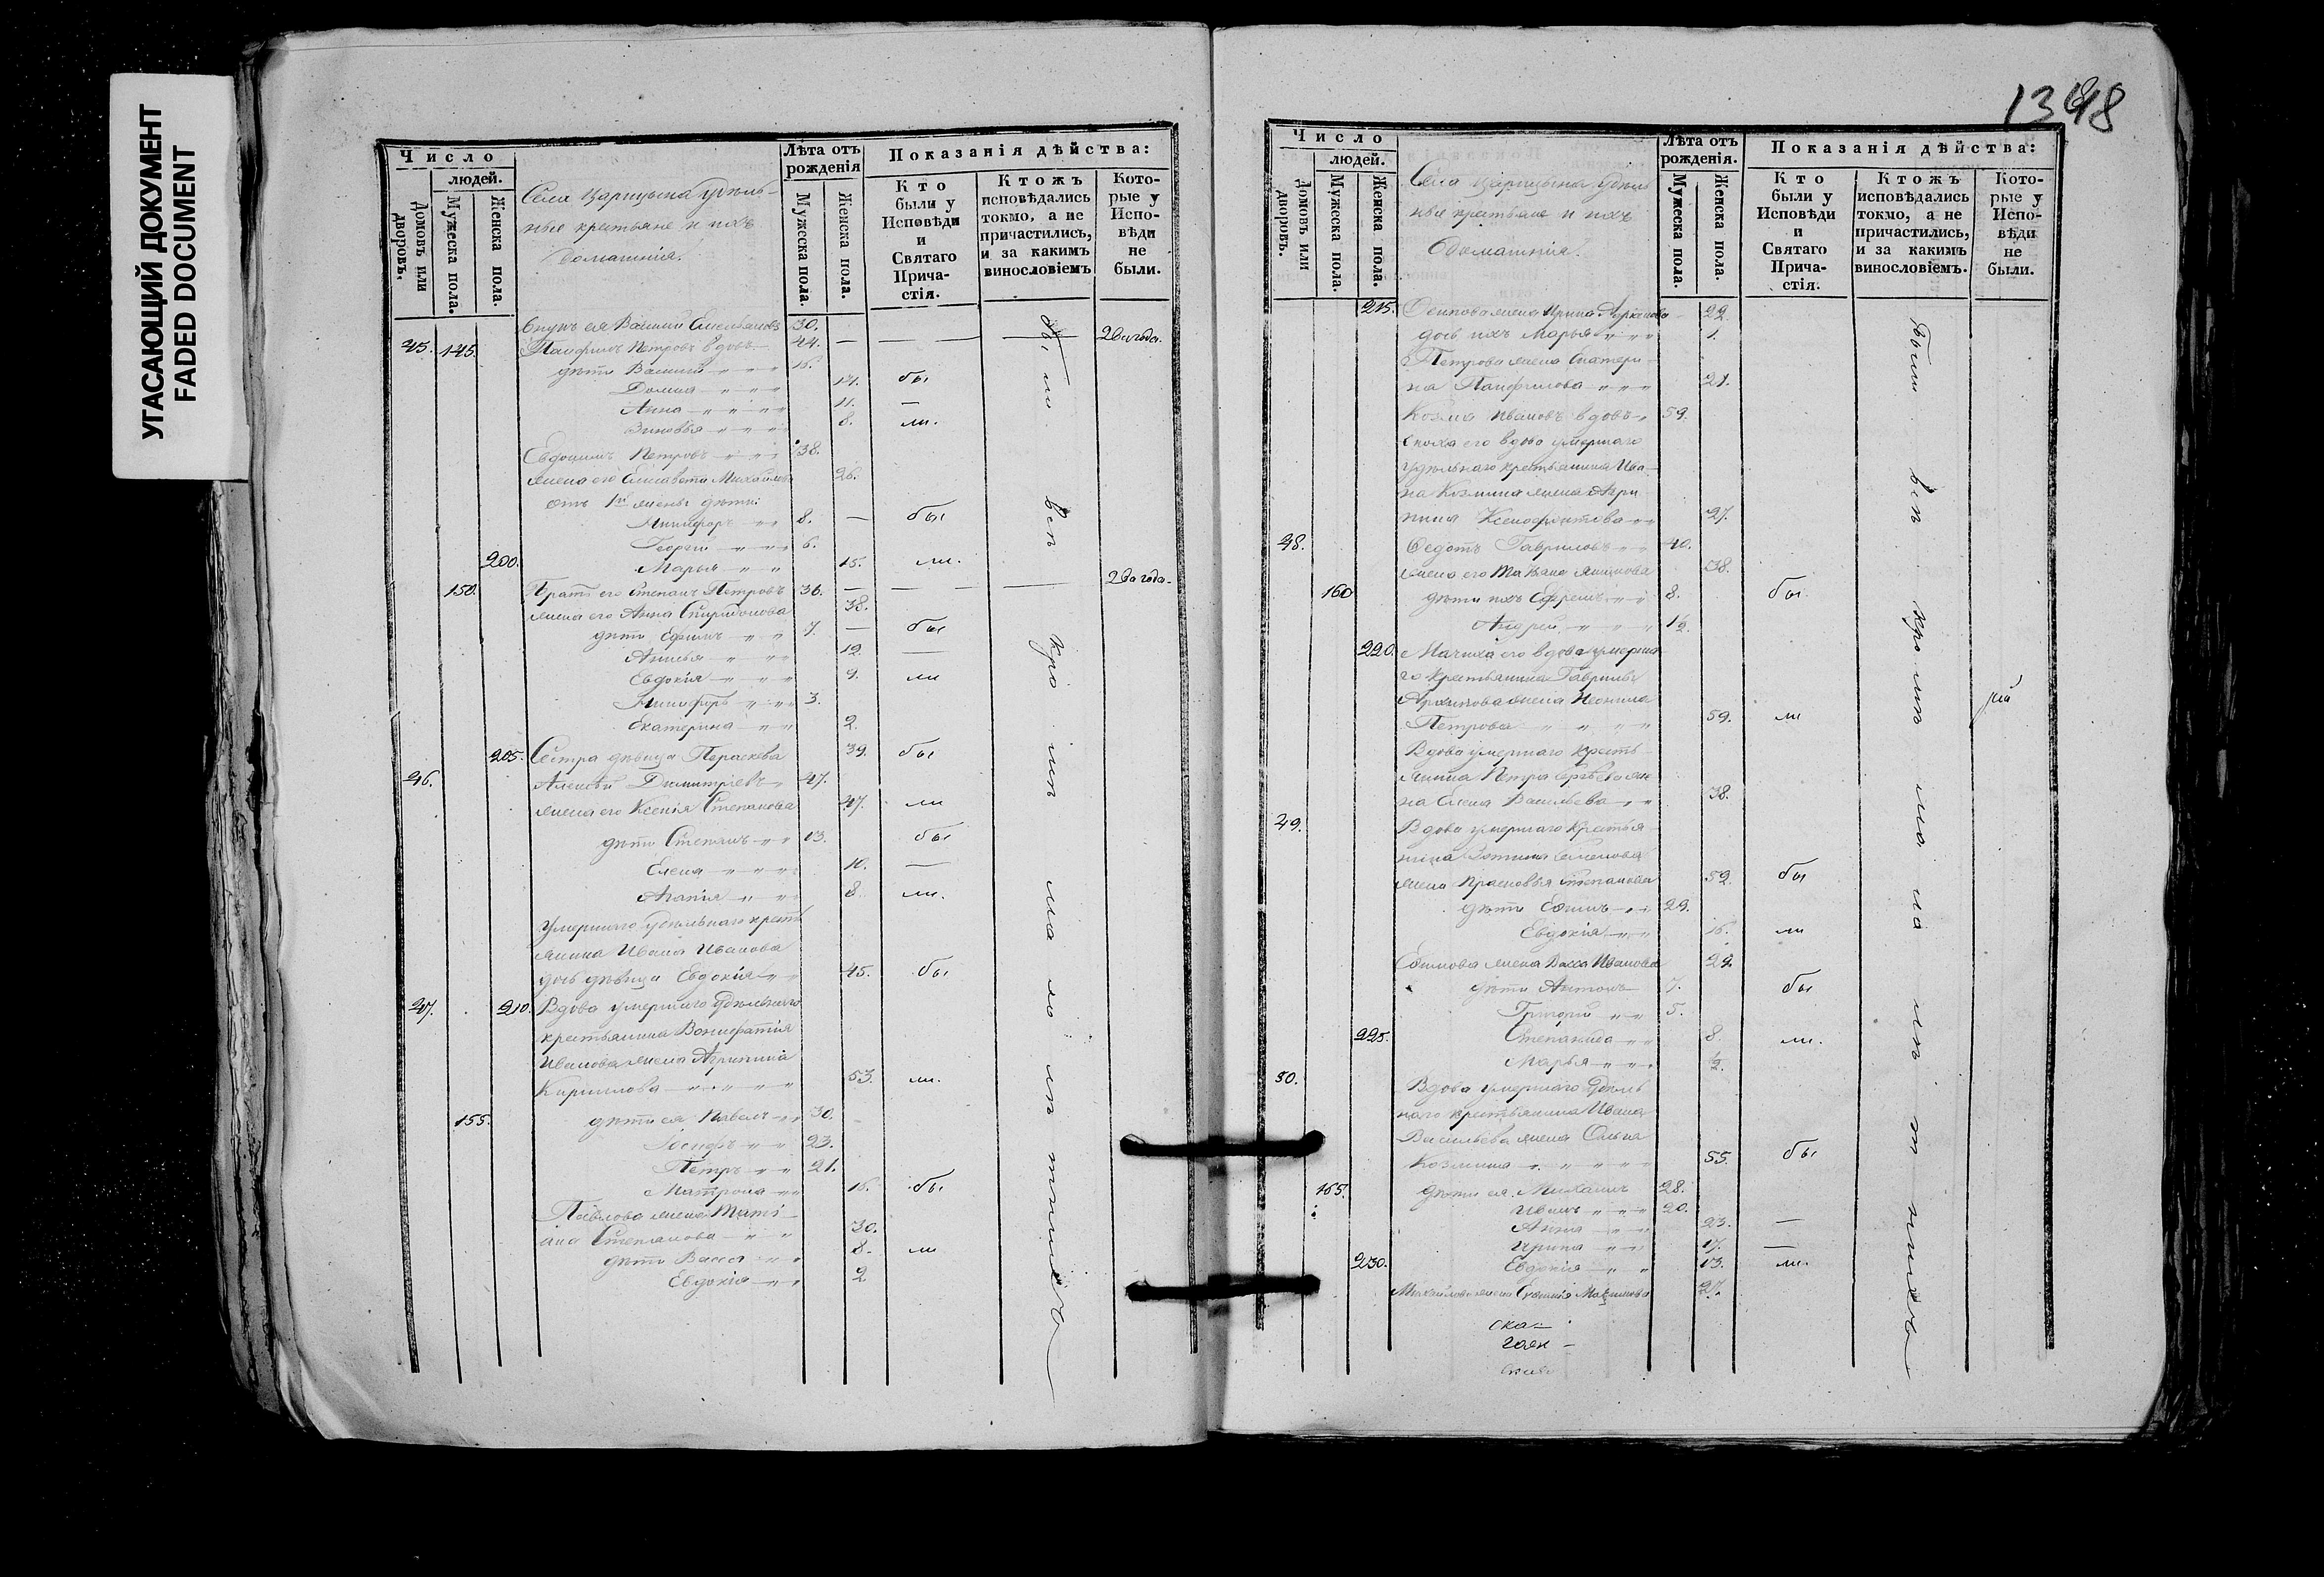 УГАСАЮЩИЙ ДОКУМЕНТ
FADED DOCUMENT
1348
Число
людей.
Домовъ или дворовъ.
Мужеска пола.
Женска пола.
Села Царицына удѣль-
ные крестьяне и ихъ
домашнія.
Лѣта отъ рожденія
Мужеска пола.
Женска пола.
Показанія дѣйства:
Кто были у Исповѣди и Святаго Прича-стія.
Ктожъ исповѣдались токмо, а не причастились, и за какимъ винословіемъ
Кото-рые у Испо-вѣди не были.
Внукъ ея Василій Емельяновъ 30.
45. 145. Панфилъ Петровъ вдовъ 44. — — — 2 года.
дѣти Василій 16.
Домна 14. бы
Анна 11. —
Зиновья 8. ли.
Евдокимъ Петровъ 38.
жена его Елисавета Михайлова 26.
отъ 1й жены дѣти:
Никифоръ 8. — бы
Георгій 6.
200. Марья 15. ли.
150. Братъ его Степанъ Петровъ 36. — — — 2 года.
жена его Анна Спиридонова 38.
дѣти Ефимъ 7. — бы
Анисья 12 —
Евдокія 9. ли
Никифоръ 3.
Екатерина 2.
205. Сестра дѣвица Параскева 39. бы
46. Алексѣй Димитріевъ 47.
жена его Ксенія Степанова 47. ли
дѣти Степанъ 13. бы
Елена 10. —
Агапія 8 ли.
Умершаго удѣльнаго кресть
янина Ивана Иванова
дочь дѣвица Евдокія 45. бы
47. 210. Вдова умершаго удѣльнаго
крестьянина Вонифатія
Иванова жена Агрипина
Кирилова 53. ли.
155. дѣти ея Павелъ 30.
Іосифъ 23.
Петръ 21.
Матрона 16. бы
Павлова жена Тати-
ана Степанова 30.
дѣти Васса 8. ли
Евдокія 2
Число
людей.
Домовъ или дворовъ.
Мужеска пола.
Женска пола.
Села Царицына удѣль
ные крестьяне и ихъ
домашнія.
Лѣта отъ рожденія.
Мужеска пола.
Женска пола.
Показанія дѣйства:
Кто были у Исповѣди и Святаго Прича-стія.
Ктожъ исповѣдались токмо, а не причастились, и за какимъ винословіемъ.
Кото-рые у Испо-вѣди не были.
215. Осипова жена Ирина 22.
дочь ихъ Марья 1.
Петрова жена Екатери-
на Панфилова 21.
Козма Ивановъ вдовъ 59.
Сноха его вдова умершаго
удѣльнаго крестьянина Ива-
на Козмина жена Агри
пина Ксенофонтова 27.
48. Федотъ Гавриловъ 40.
жена его Татьяна 38.
160 дѣти ихъ Ефремъ 8. бы.
Андрей 1½.
220. Мачиха его вдова умерша
го крестьянина Гаврилы
Архипова жена Неонила
Петрова 59. ли
Вдова умершаго кресть
янина Петра Сергѣева же
на Елена Васильева 38.
49. Вдова умершаго крестья
нина Семенова
жена Прасковья Степанова 52. бы
дѣти Ефимъ 29.
Евдокія 16. ли
Ефимова жена Васса Иванова 22.
дѣти Антонъ 7. бы
Григорій 5.
225. Степанида 8. ли.
Марья ½.
50. Вдова умершаго удѣль
наго крестьянина Ивана
Васильева жена Ольга
Козмина 55. бы
165. дѣти ея Михаилъ 28.
Иванъ 20.
Анна 23. —
Ирина 17. —
230. Евдокія 13. ли.
Михайлова жена Евгенія Максимова 27.